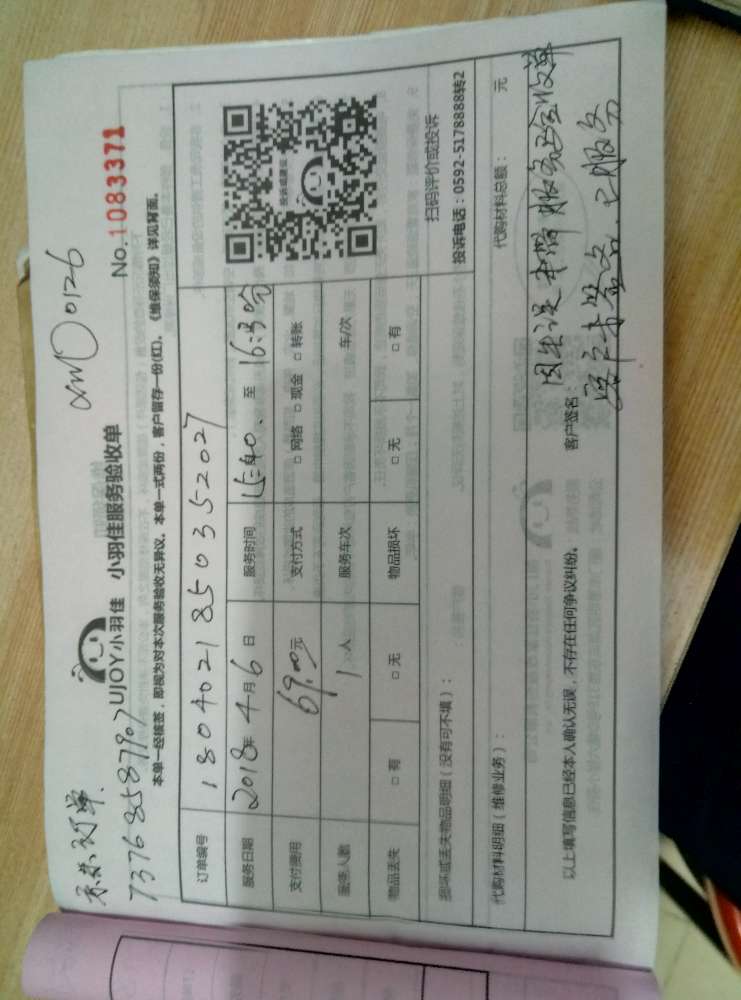 订单
73768587907
No.1083371
UJOY小羽佳 小羽佳服务验收单
本单一经核签，即视为对本次服务验收无异议。本单一式两份，客户留存一份(红)。《维保须知》详见背面。
订单编号 1804021850352027
服务日期 2018年4月6日 服务时间 15:40、至 16:30
支付费用 69.00元 支付方式 □ 网络 □ 现金 □ 转账
服务人数 1 人 服务车次 车/次
物品丢失 □ 有 □ 无 物品损坏 □ 无 □ 有
投诉或建议
扫码评价或投诉
投诉电话：0592-5178888转2
损坏或丢失物品明细（没有可不填）：
代购材料明细（维修业务）： 代购材料总额： 元
以上填写信息已经本人确认无误，不存在任何争议纠纷。 客户签名：
服务验收单
客户未签名，已服务